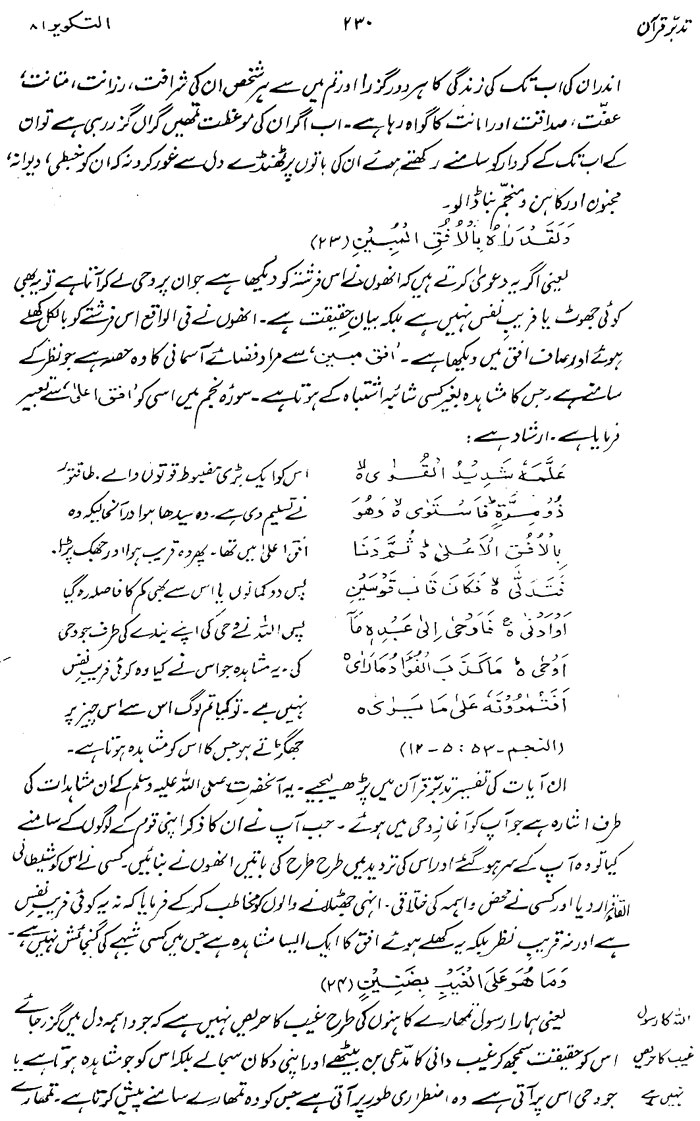 تدبّرِ قرآن ۲۳۰ التکویر ۸۱
اندر ان کی اب تک کی زندگی کا ہر دور گزرا اور تم میں سے ہر شخص ان کی شرافت، رزانت، متانت،
عفّت، صداقت اور امانت کا گواہ رہا ہے۔ اب اگر ان کی موعظت تمھیں گراں گزر رہی ہے تو ان
کے اب تک کے کردار کو سامنے رکھتے ہوئے ان کی باتوں پر ٹھنڈے دل سے غور کرو نہ کہ ان کو خبطی، دیوانہ،
مجنون اور کاہن و منجّم بنا ڈالو۔
وَلَقَدْ رَاٰهُ بِالْاُفُقِ الْمُبِيْنِ (۲۳)
یعنی اگر یہ دعویٰ کرتے ہیں کہ انھوں نے اس فرشتہ کو دیکھا ہے جو ان پر وحی لے کر آتا ہے تو یہ بھی
کوئی جھوٹ یا فریبِ نفس نہیں ہے بلکہ بیانِ حقیقت ہے۔ انھوں نے فی الواقع اس فرشتے کو بالکل کھلے
ہوئے اور صاف افق میں دیکھا ہے۔ ’افق مبین‘ سے مراد فضائے آسمانی کا وہ حصہ ہے جو نظر کے
سامنے ہے، جس کا مشاہدہ بغیر کسی شائبہ اشتباہ کے ہوتا ہے۔ سورۂ نجم میں اسی کو ’افق اعلیٰ‘ سے تعبیر
فرمایا ہے۔ ارشاد ہے:
عَلَّمَهٗ شَدِيْدُ الْقُوٰى ۙ اس کو ایک بڑی مضبوط قوتوں والے۔ طاقتور
ذُوْ مِرَّةٍ ؕ فَاسْتَوٰى ۙ وَهُوَ نے تعلیم دی ہے۔ وہ سیدھا ہوا درآنحالیکہ وہ
بِالْاُفُقِ الْاَعْلٰى ؕ ثُمَّ دَنَا افقِ اعلیٰ میں تھا۔ پھر وہ قریب ہوا اور جھک پڑا۔
فَتَدَلّٰى ۙ فَكَانَ قَابَ قَوْسَيْنِ بس دو کمانوں یا اس سے بھی کم کا فاصلہ رہ گیا
اَوْ اَدْنٰى ۚ فَاَوْحٰى اِلٰى عَبْدِهٖ مَاۤ پس اللہ نے وحی کی اپنے بندے کی طرف جو وحی
اَوْحٰى ؕ مَا كَذَبَ الْفُؤَادُ مَا رَاٰى ۙ کی۔ یہ مشاہدہ جو اس نے کیا وہ کوئی فریبِ نفس
اَفَتُمٰرُوْنَهٗ عَلٰى مَا يَرٰى ۙ نہیں ہے۔ تو کیا تم لوگ اس سے اس چیز پر
(النجم - ۵۳ : ۵ - ۱۲) جھگڑتے ہو جس کا اس کو مشاہدہ ہوتا ہے۔
ان آیات کی تفسیر تدبّرِ قرآن میں پڑھ لیجیے۔ یہ آنحضرت صلی اللہ علیہ وسلم کے ان مشاہدات کی
طرف اشارہ ہے جو آپ کو آغازِ وحی میں ہوئے۔ جب آپ نے ان کا ذکر اپنی قوم کے لوگوں کے سامنے
کیا تو وہ آپ کے سر ہو گئے اور اس کی تردید میں طرح طرح کی باتیں انھوں نے بنائیں۔ کسی نے اس کو شیطانی
القاء قرار دیا اور کسی نے محض واہمہ کی خلاقی۔ انہی جھٹلانے والوں کو مخاطب کر کے فرمایا کہ نہ یہ کوئی فریبِ نفس
ہے اور نہ فریبِ نظر بلکہ یہ کھلے ہوئے افق کا ایک ایسا مشاہدہ ہے جس میں کسی شبہے کی گنجائش نہیں ہے۔
وَمَا هُوَ عَلَى الْغَيْبِ بِضَنِيْنٍ (۲۴)
اللہ کا رسول یعنی ہمارا رسول تمھارے کاہنوں کی طرح غیب کا حریص نہیں ہے کہ جو واہمہ دل میں گزر جائے
غیب کا حریص اس کو حقیقت سمجھ کر غیب دانی کا مدّعی بن بیٹھے اور اپنی دکان سجا لے بلکہ اس کو جو مشاہدہ ہوتا ہے یا
نہیں ہے جو وحی اس پر آتی ہے وہ اضطراری طور پر آتی ہے جس کو وہ تمھارے سامنے پیش کرتا ہے۔ تمھارے